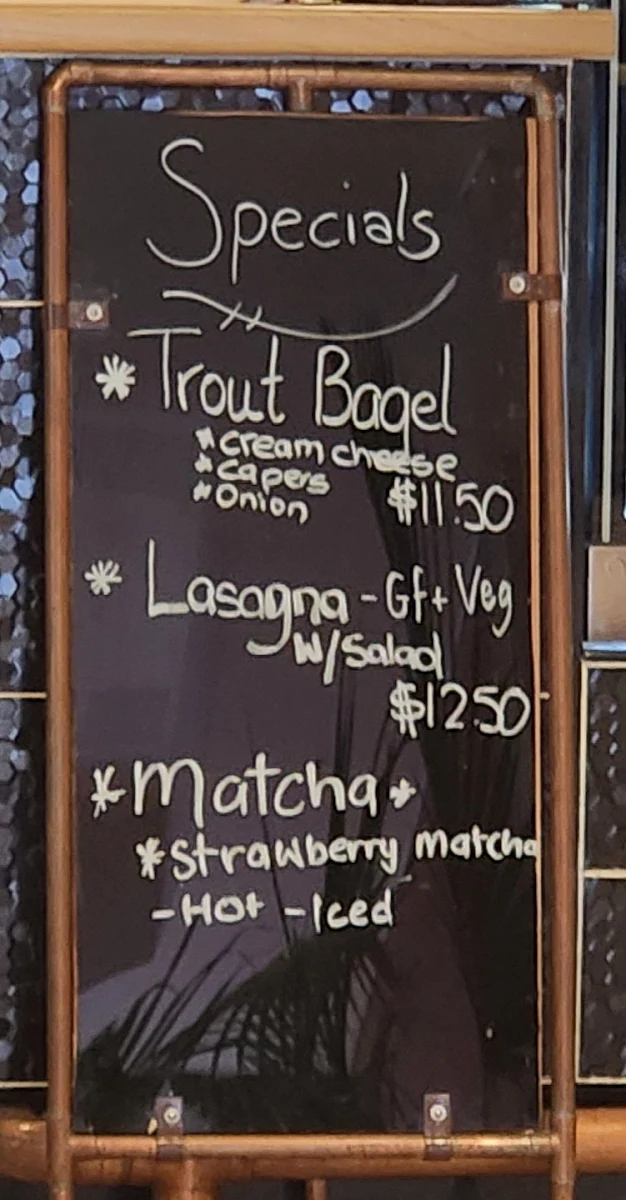 Specials
* Trout Bagel
* cream cheese
* capers
* Onion $11.50
* Lasagna - Gf + Veg
W/Salad
$12.50
* Matcha *
* Strawberry matcha
- Hot - Iced